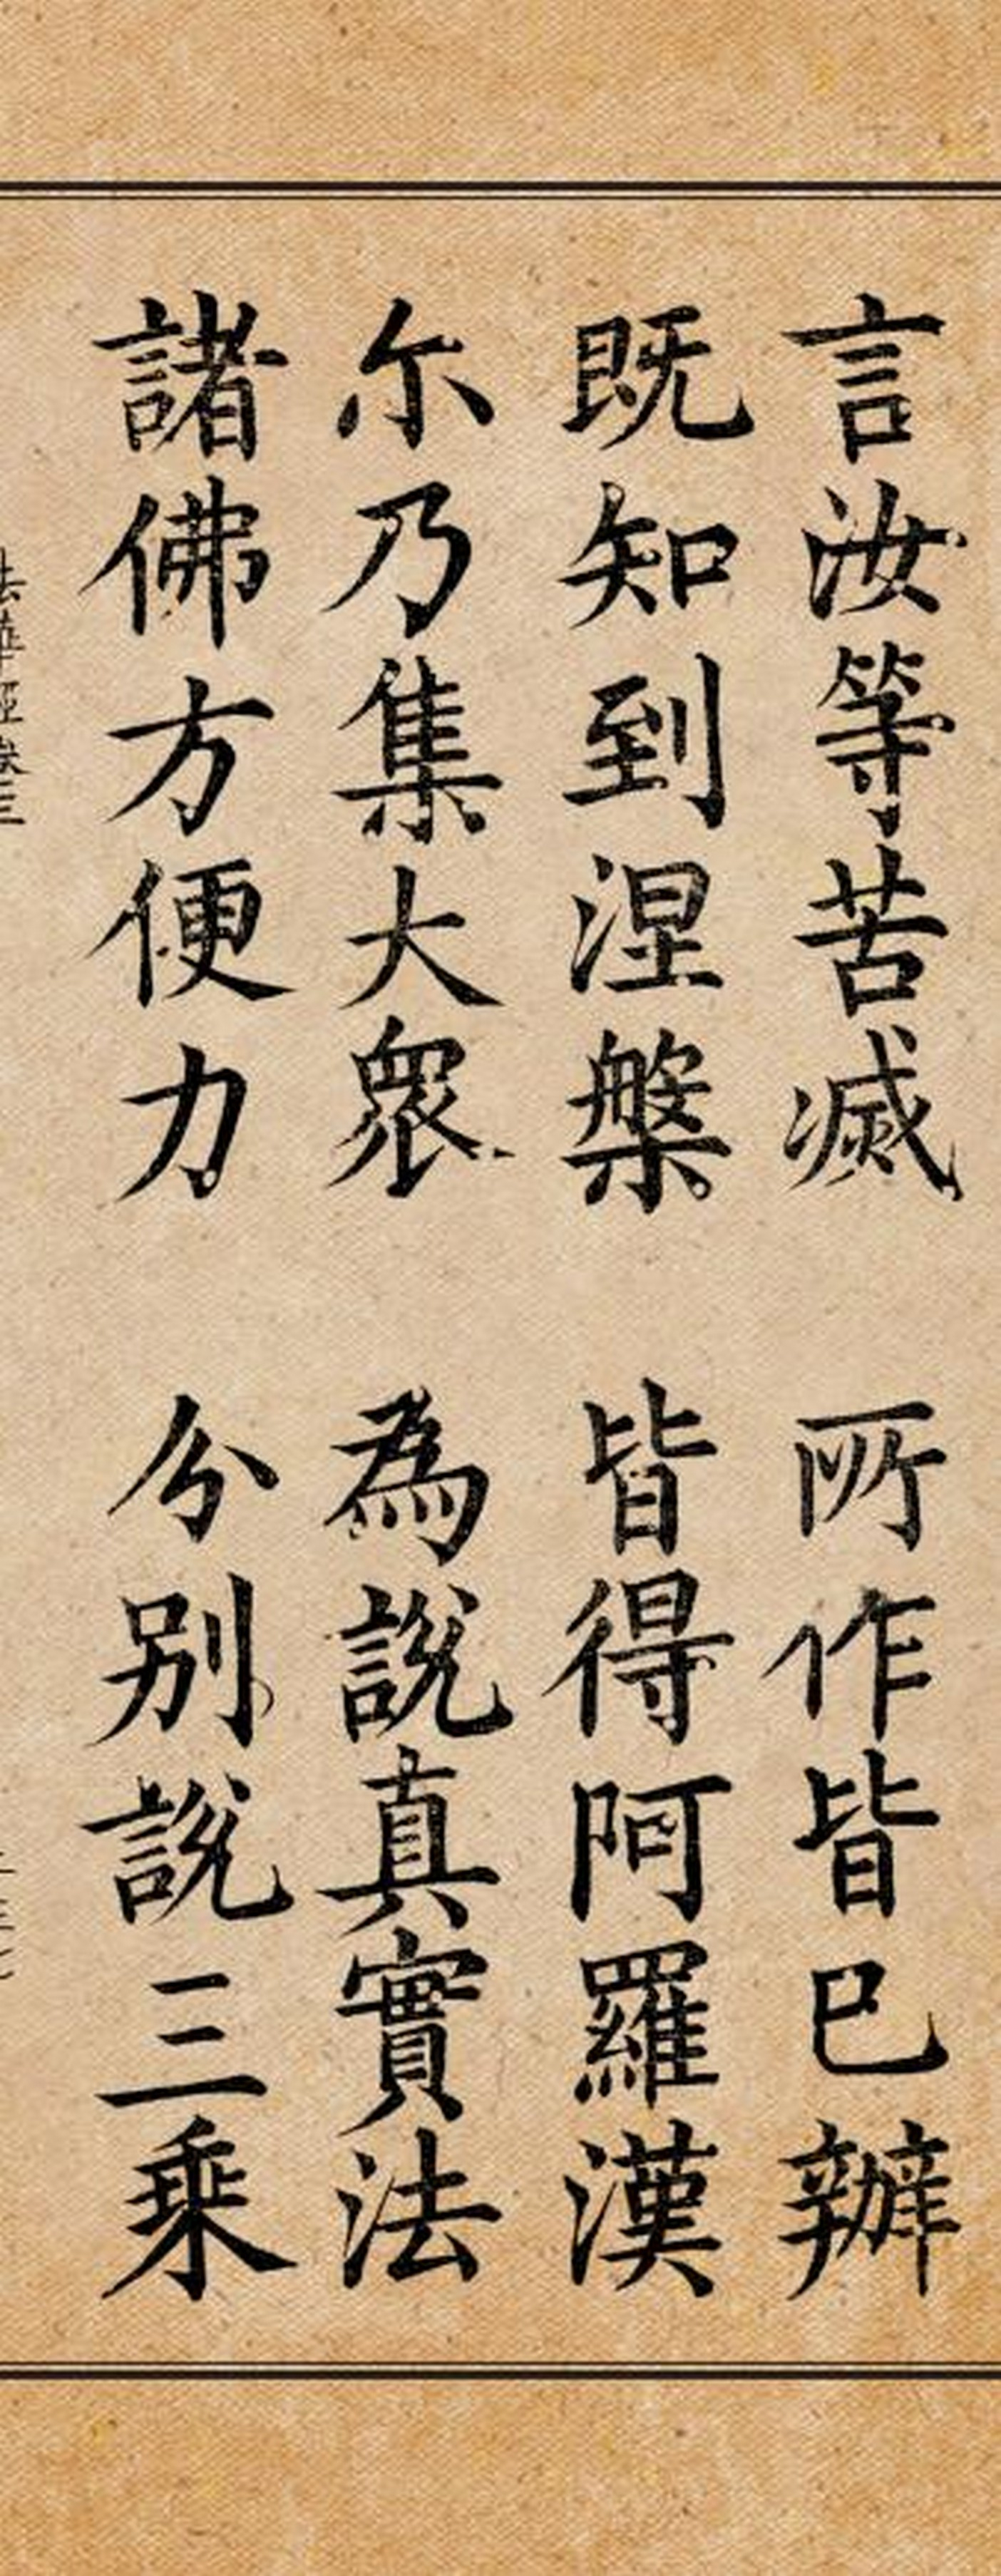 言汝等苦滅 所作皆已辦
既知到涅槃 皆得阿羅漢
尔乃集大眾 為說真實法
諸佛方便力 分別說三乘